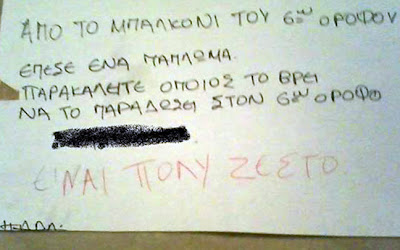 ΑΠΟ ΤΟ ΜΠΑΛΚΟΝΙ ΤΟΥ 6ου ΟΡΟΦΟΥ
ΕΠΕΣΕ ΕΝΑ ΠΑΠΛΩΜΑ.
ΠΑΡΑΚΑΛΕΙΤΕ ΟΠΟΙΟΣ ΤΟ ΒΡΕΙ
ΝΑ ΤΟ ΠΑΡΑΔΩΣΕΙ ΣΤΟΝ 6ον ΟΡΟΦΟ
ΕΙΝΑΙ ΠΟΛΥ ΖΕΣΤΟ.